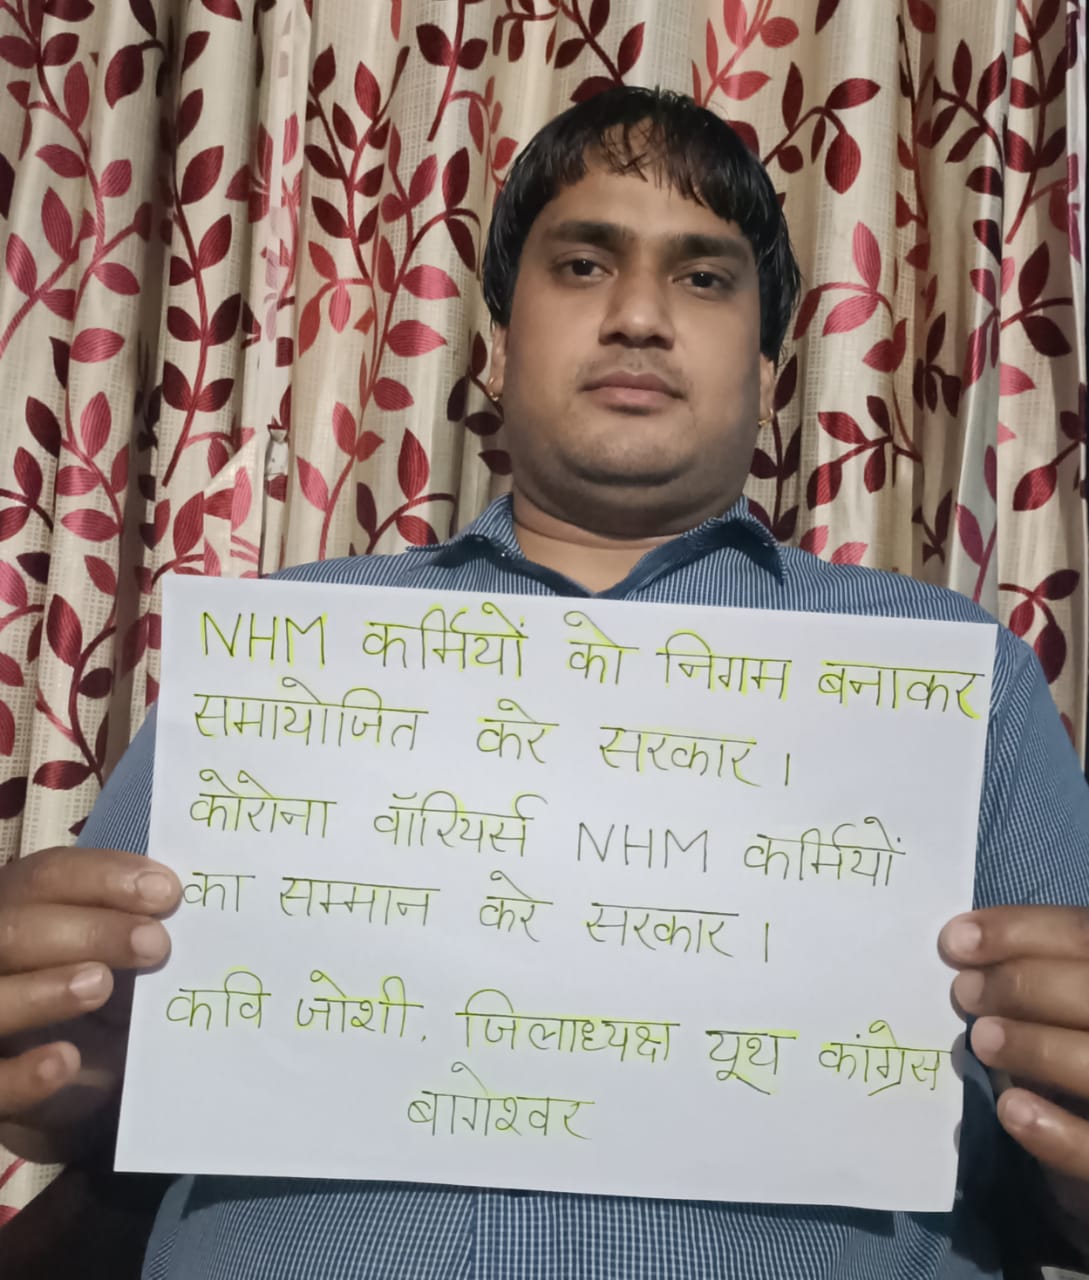 NHM कर्मियों को निगम बनाकर
समायोजित करे सरकार।
कोरोना वॉरियर्स NHM कर्मियों
का सम्मान करे सरकार।
कवि जोशी, जिलाध्यक्ष यूथ कांग्रेस
बागेश्वर